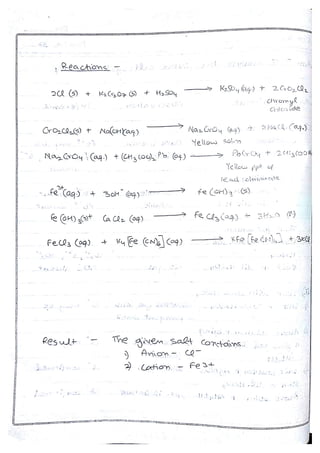 Reactions :-
2Cl (s) + K2Cr2O7 (s) + H2SO4 → K2SO4 (aq.) + 2CrO2Cl2
chromyl
chloride
CrO2Cl2(s) + NaOH(aq) → Na2CrO4 (aq) + 2NaCl (aq.)
Yellow soln
Na2CrO4 (aq.) + (CH3COO)2 Pb (aq) → PbCrO4 + 2CH3COONa
Yellow ppt of
lead chromate
Fe3+(aq) + 3OH- (aq) → Fe(OH)3 (s)
Fe(OH)3(s) + CaCl2 (aq) → FeCl3(aq) + 3H2O (l)
FeCl3 (aq) + K4[Fe(CN)6](aq) → KFe[Fe(CN)6] + 3KCl
Result :- The given salt contains.
1) Anion - Cl-
2) Cation - Fe3+